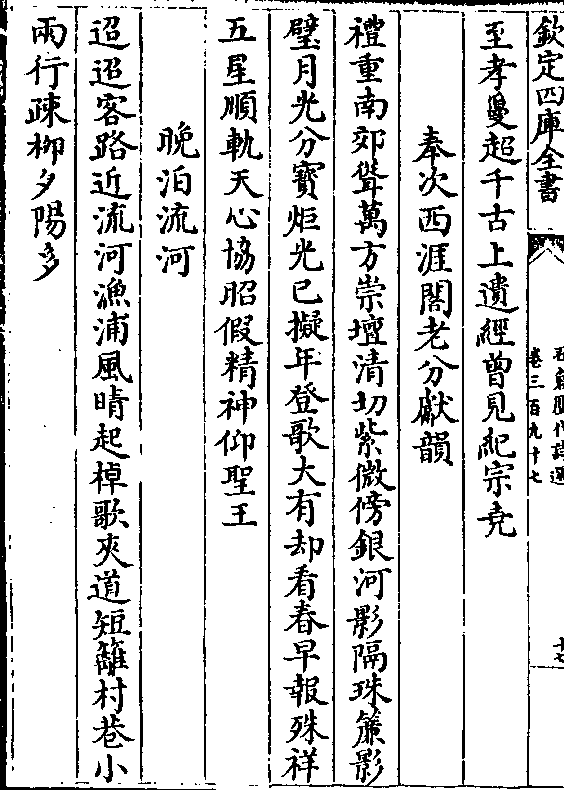 欽定四庫全書
卷三百九十七
十七
至孝敻超千古上遺經曾見紀宗堯
奉次西涯閣老分獻韻
禮重南郊聳萬方崇壇清切紫微傍銀河影隔珠簾影
璧月光分寳炬光已擬年登歌大有却看春早報殊祥
五星順軌天心協昭假精神仰聖王
晚泊流河
迢迢客路近流河漁浦風晴起棹歌夾道短籬村巷小
兩行疎栁夕陽多